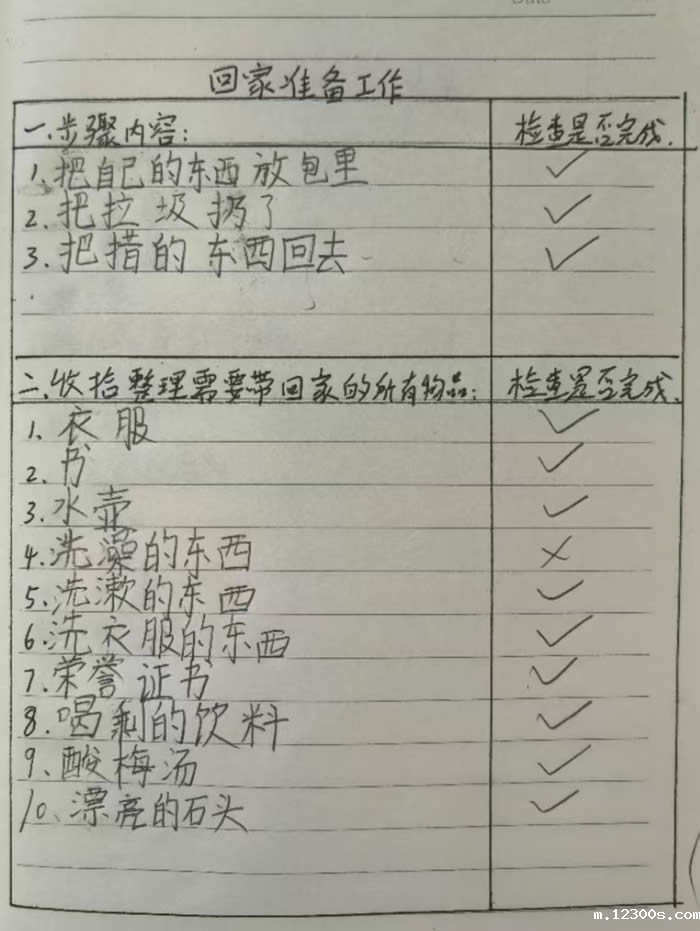 Date
回家准备工作
一.步骤内容: 检查是否完成.
1.把自己的东西放包里 ✓
2.把垃圾扔了 ✓
3.把措的东西回去 ✓
二.收拾整理需要带回家的所有物品: 检查是否完成.
1.衣服 ✓
2.书 ✓
3.水壶 ✓
4.洗澡的东西 ×
5.洗漱的东西 ✓
6.洗衣服的东西 ✓
7.荣誉证书 ✓
8.喝剩的饮料 ✓
9.酸梅汤 ✓
10.漂亮的石头 ✓
m.12300s.com